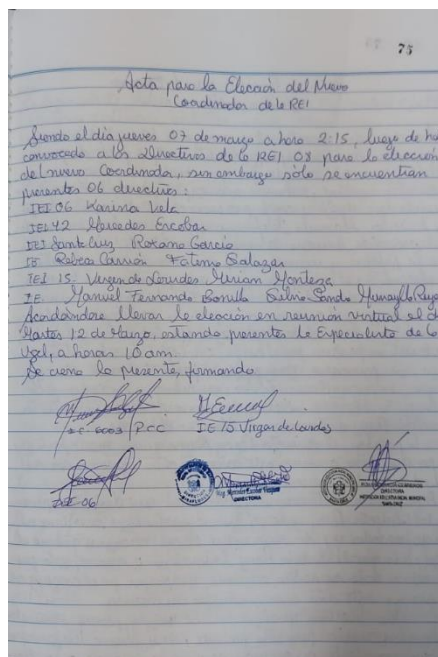 75
Acta para la Elección del Nuevo
Coordinador de la REI
Siendo el día jueves 07 de marzo a hora 2:15, luego de
convocado a los Directivos de la REI 08 para la elección
del nuevo Coordinador, sin embargo sólo se encuentran
presentes 06 directivos:
IEI 06 Karina Vela
IEI 42 Mercedes Escobar
IEI Santa Luz Roxana García
IE Rebeca Carrión Fatima Salazar
IEI 15 Virgen de Lourdes Mirian Monteza
IE. Manuel Fernando Bonilla
Acordándose llevar la elección en reunión virtual el
Martes 12 de Marzo, estando presentes la Especialista de la
Ugel, a horas 10 am.
Se cierra la presente, firmando.
PCC
IE 15 Virgen de Lourdes
IEI-06
DIRECTORA
DIRECTORA